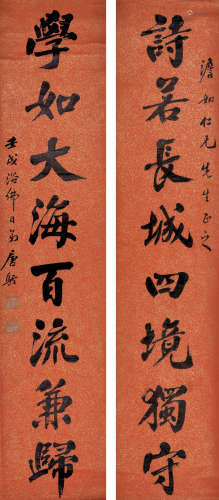 澹如仁兄先生正之
詩若長城四境獨守
學如大海百流兼歸
壬戌浴佛日弟唐駝